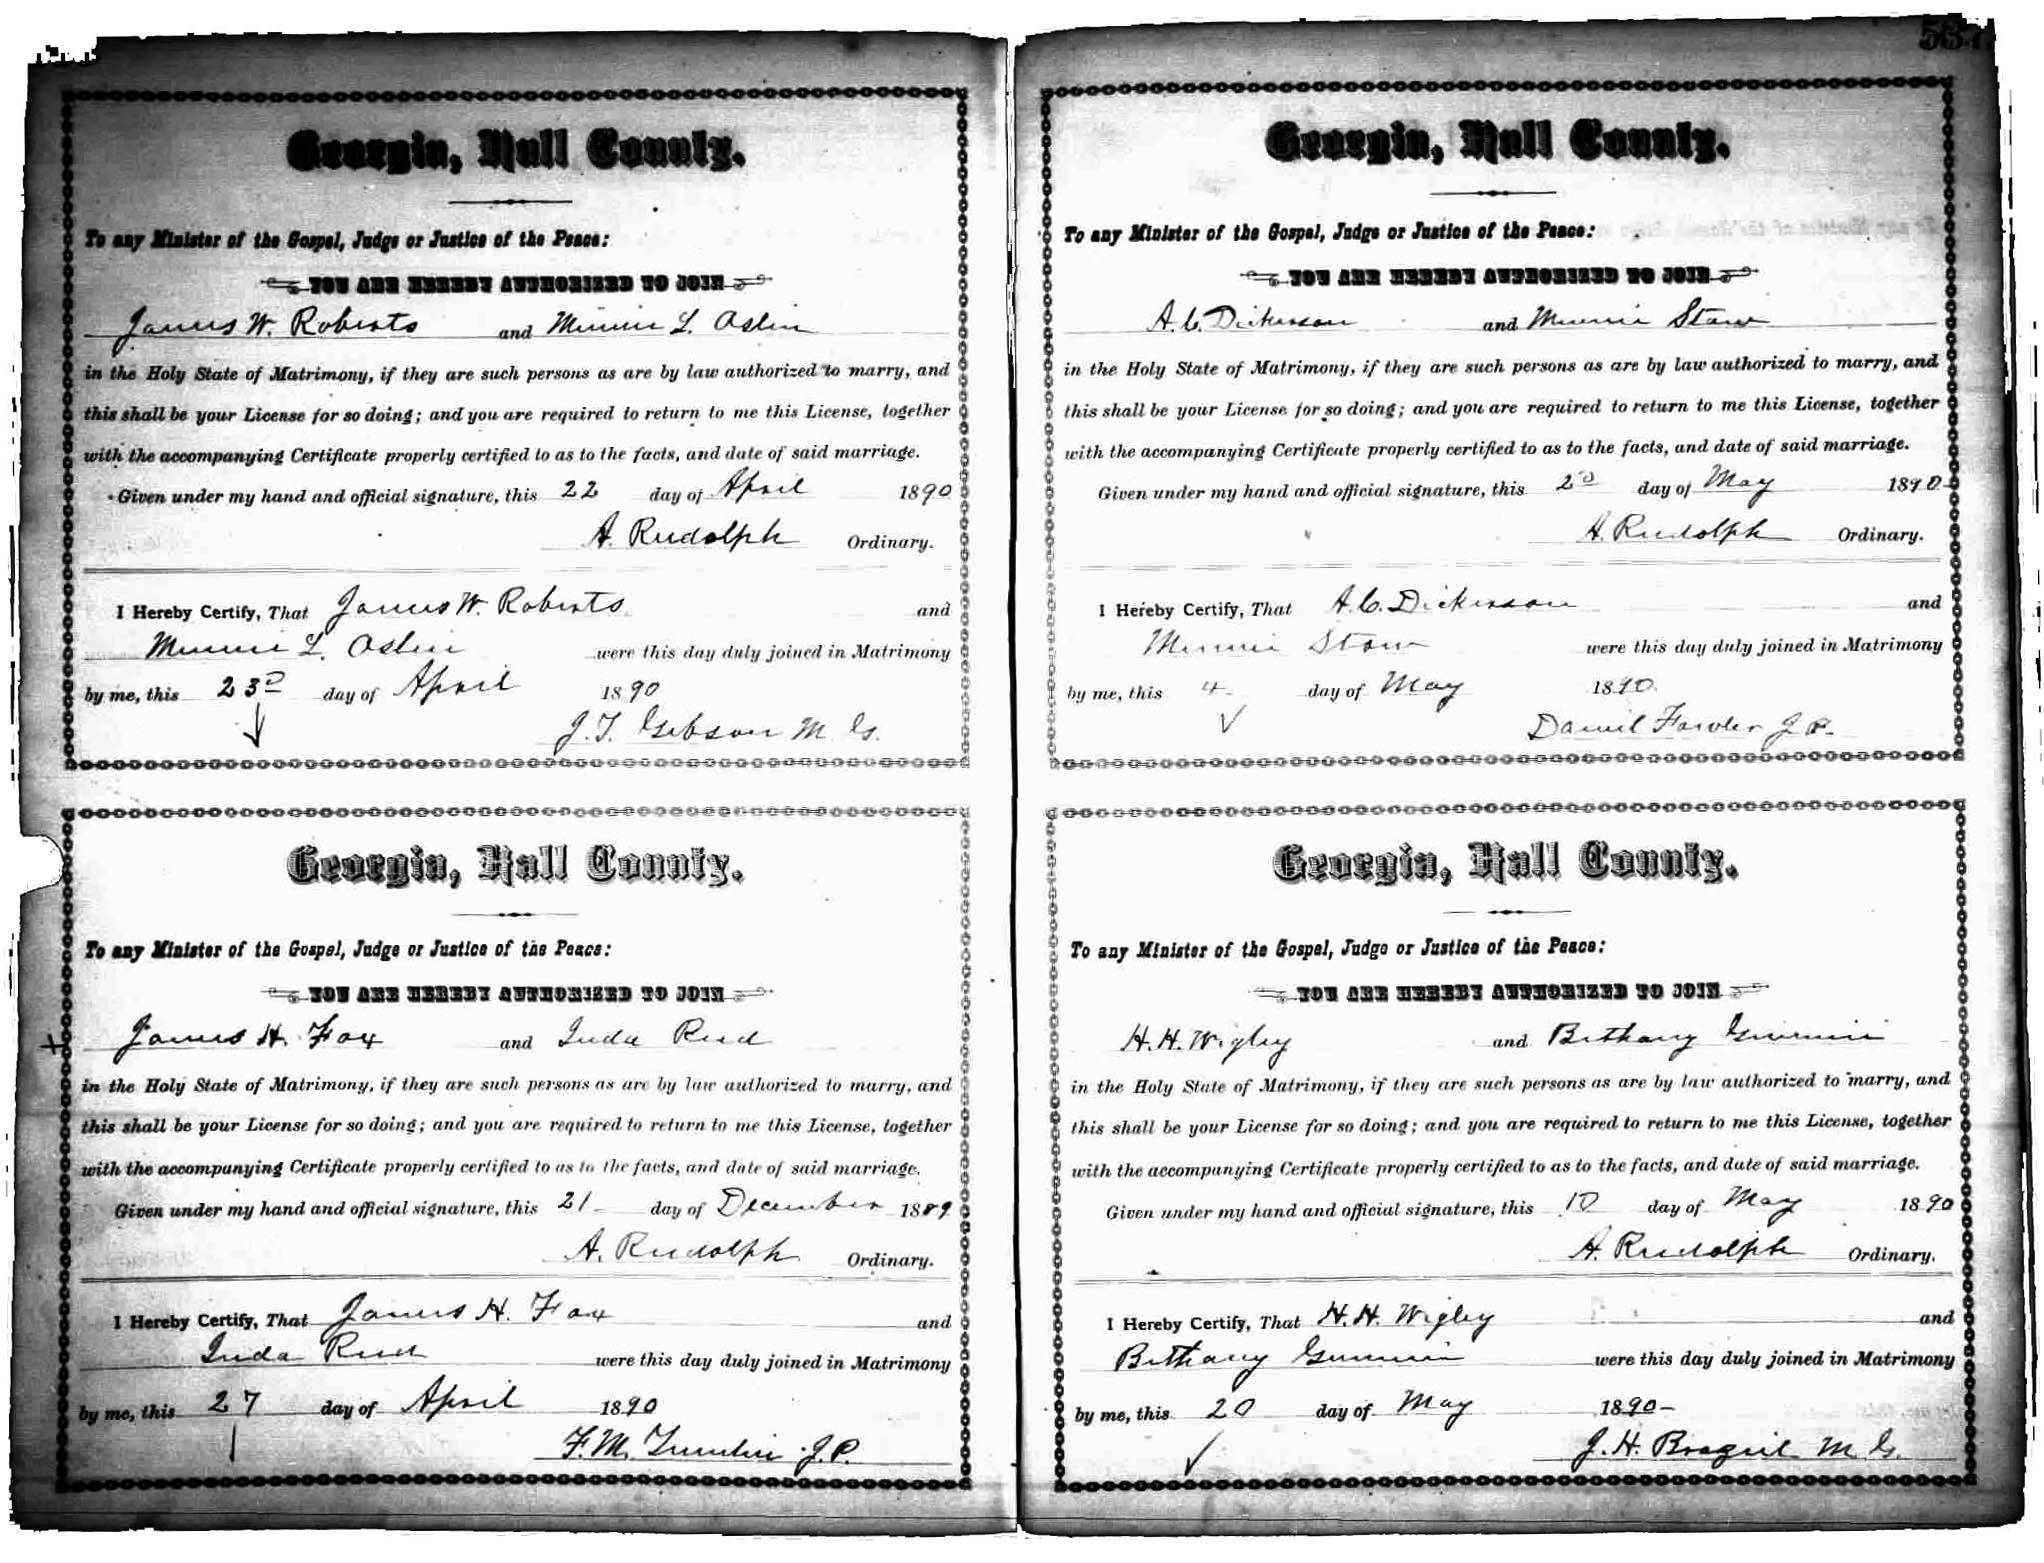 Georgia, Hall County.
To any Minister of the Gospel, Judge or Justice of the Peace:
YOU ARE HEREBY AUTHORIZED TO JOIN
James W. Roberts and Minnie L. Aslin
in the Holy State of Matrimony, if they are such persons as are by law authorized to marry, and
this shall be your License for so doing; and you are required to return to me this License, together
with the accompanying Certificate properly certified to as to the facts, and date of said marriage.
Given under my hand and official signature, this 22 day of April 1890
A. Rudolph Ordinary.
I Hereby Certify, That James W. Roberts and
Minnie L. Aslin were this day duly joined in Matrimony
by me, this 23D day of April 1890
J. T. Gibson M. G.
Georgia, Hall County.
To any Minister of the Gospel, Judge or Justice of the Peace:
YOU ARE HEREBY AUTHORIZED TO JOIN
James H. Fox and Inda Reed
in the Holy State of Matrimony, if they are such persons as are by law authorized to marry, and
this shall be your License for so doing; and you are required to return to me this License, together
with the accompanying Certificate properly certified to as to the facts, and date of said marriage.
Given under my hand and official signature, this 21 day of December 1889
A. Rudolph Ordinary.
I Hereby Certify, That James H. Fox and
Inda Reed were this day duly joined in Matrimony
by me, this 27 day of April 1890
F. M. Tumlin J. P.
Georgia, Hall County.
To any Minister of the Gospel, Judge or Justice of the Peace:
YOU ARE HEREBY AUTHORIZED TO JOIN
A. C. Dickerson and Minnie Stow
in the Holy State of Matrimony, if they are such persons as are by law authorized to marry, and
this shall be your License for so doing; and you are required to return to me this License, together
with the accompanying Certificate properly certified to as to the facts, and date of said marriage.
Given under my hand and official signature, this 2D day of May 1890
A. Rudolph Ordinary.
I Hereby Certify, That A. C. Dickerson and
Minnie Stow were this day duly joined in Matrimony
by me, this 4 day of May 1890
Daniel Fowler J. P.
Georgia, Hall County.
To any Minister of the Gospel, Judge or Justice of the Peace:
YOU ARE HEREBY AUTHORIZED TO JOIN
H. H. Wigley and Bethany
in the Holy State of Matrimony, if they are such persons as are by law authorized to marry, and
this shall be your License for so doing; and you are required to return to me this License, together
with the accompanying Certificate properly certified to as to the facts, and date of said marriage.
Given under my hand and official signature, this 10 day of May 1890
A. Rudolph Ordinary.
I Hereby Certify, That H. H. Wigley and
Bethany were this day duly joined in Matrimony
by me, this 20 day of May 1890
J. H. Braziel M. G.